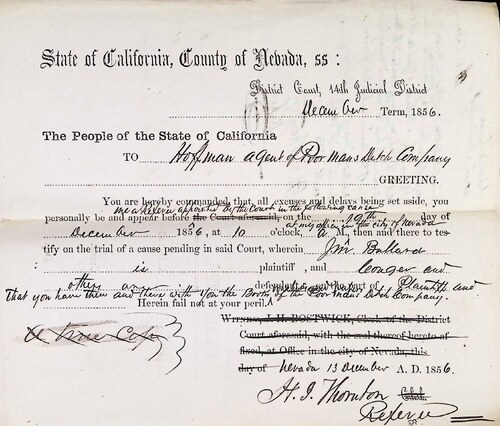 State of California, County of Nevada, ss:
District Court, 14th Judicial District
December Term, 1856.
The People of the State of California
TO Hoffman agent of Poor mans Ditch Company
GREETING.
You are hereby commanded, that, all excuses and delays being set aside, you
me a Referee appointed by the Court in the following cause
personally be and appear before the Court aforesaid, on the 19th day of
at my office in the city of Nevada
December 1856, at 10 o'clock, A. M., then and there to tes-
tify on the trial of a cause pending in said Court, wherein Jm Bullard
is plaintiff, and Conger and
others are defendants, on the part of Plaintiff and
that you have then and there with you the Books of the Poor mans Ditch Company.
Herein fail not at your peril.
A True Copy
WITNESS, J. H. BOSTWICK, Clerk of the District
Court aforesaid, with the seal thereof hereto af-
fixed, at Office in the city of Nevada, this
day of Nevada 13 December A. D. 1856.
H. I. Thornton Clerk.
Referee